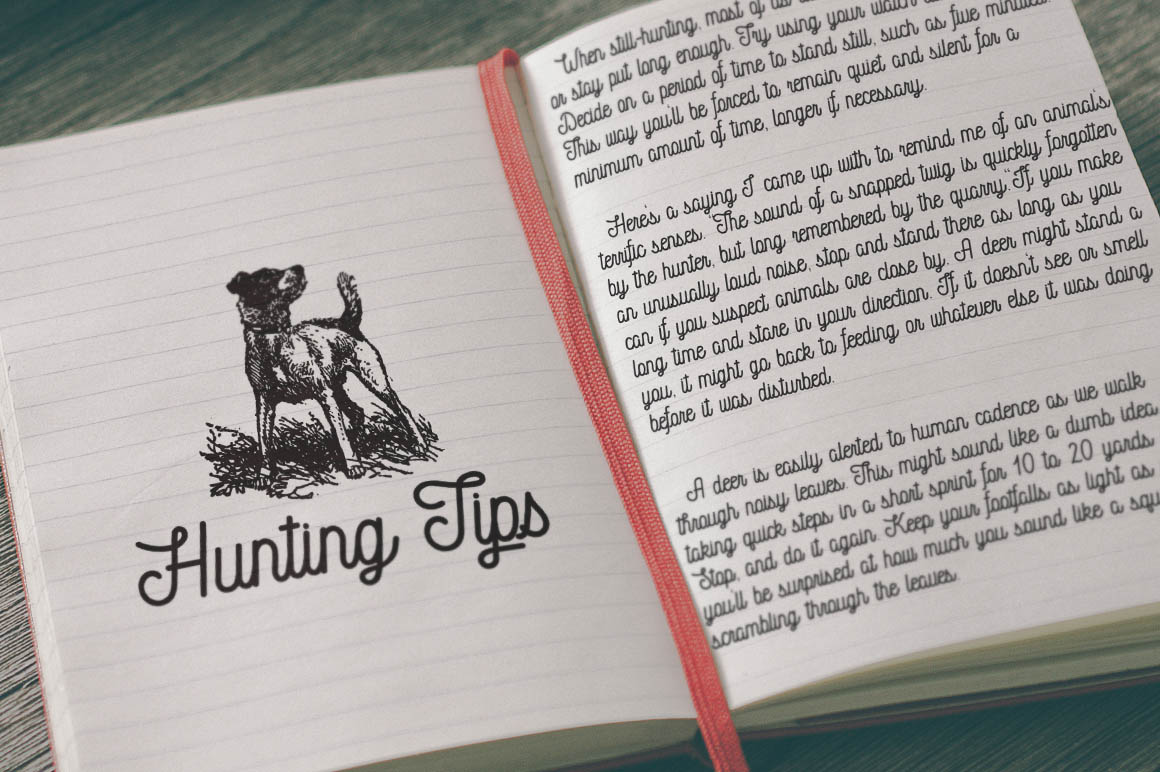 Hunting Tips
When still-hunting, most of us
or stay put long enough. Try using your watch
Decide on a period of time to stand still, such as five minutes.
This way you'll be forced to remain quiet and silent for a
minimum amount of time, longer if necessary.
Here's a saying I came up with to remind me of an animal's
terrific senses. "The sound of a snapped twig is quickly forgotten
by the hunter, but long remembered by the quarry." If you make
an unusually loud noise, stop and stand there as long as you
can if you suspect animals are close by. A deer might stand a
long time and stare in your direction. If it doesn't see or smell
you, it might go back to feeding or whatever else it was doing
before it was disturbed.
A deer is easily alerted to human cadence as we walk
through noisy leaves. This might sound like a dumb idea
taking quick steps in a short sprint for 10 to 20 yards
Stop, and do it again. Keep your footfalls as light as
you'll be surprised at how much you sound like a squ
scrambling through the leaves.